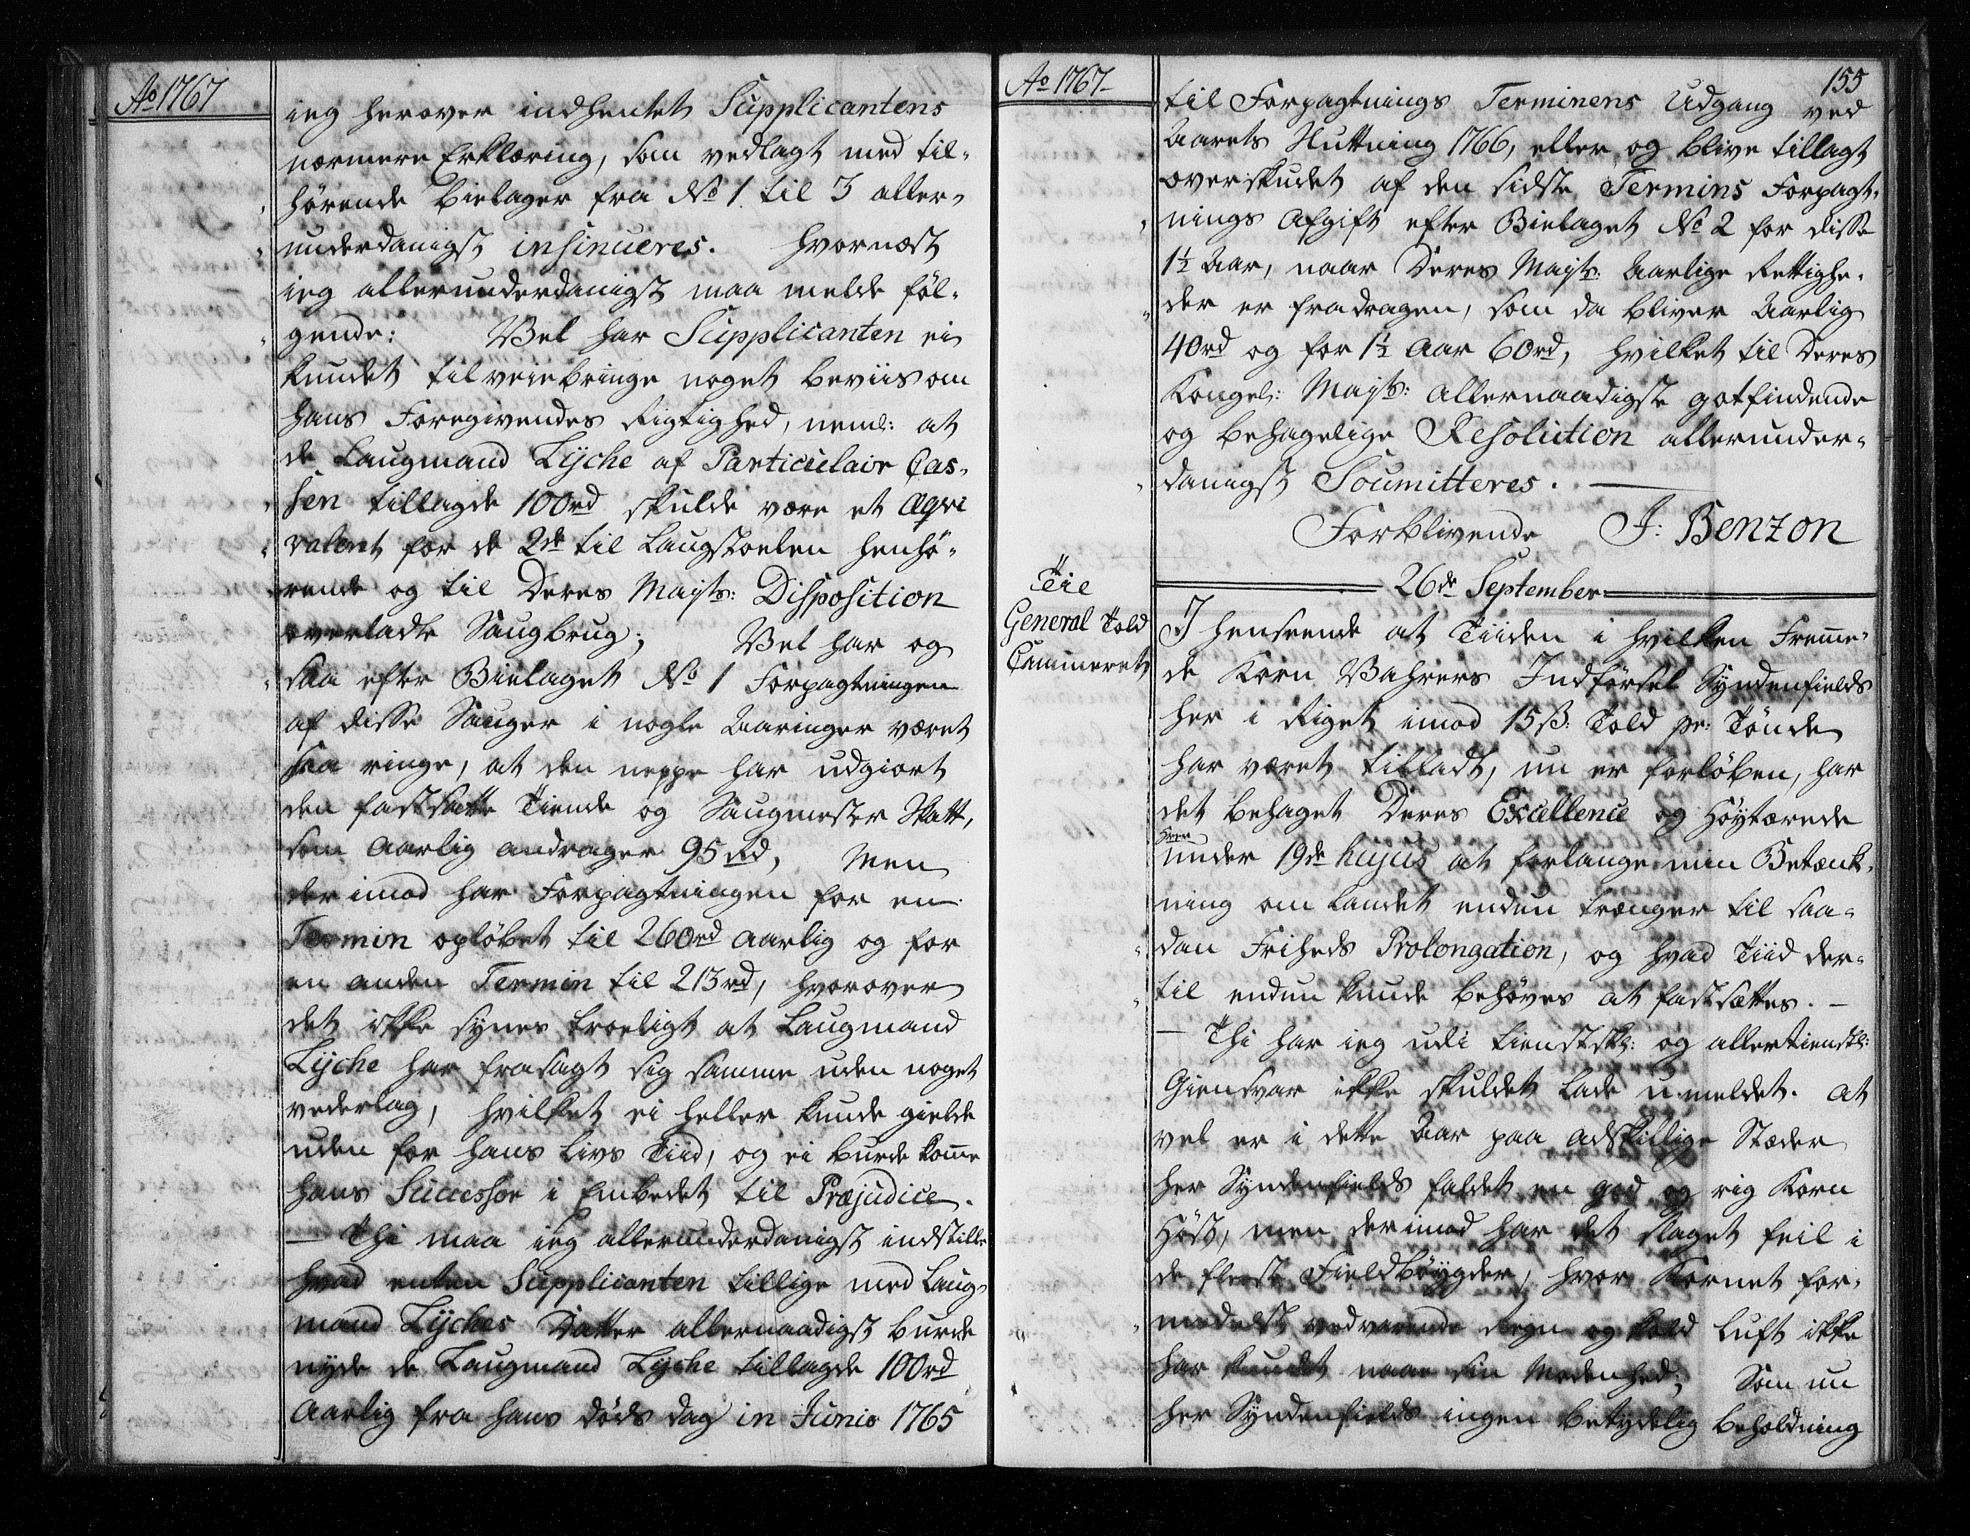 Ao 1767
ieg herover indhentet Supplicantens
nærmere Erklæring, som vedlagt med til-
hørende Bielager fra No 1 til 3 aller-
underdanigst insinueres. Hvornæst
ieg allerunderdanigst maa melde føl-
gende: Vel har Supplicanten ei
kundet tilveiebringe noget Beviis om
hans Foregivendes Rigtighed, neml: at
de Laugmand Lyche af Particulair Cas-
sen tillagde 100rd skulde være et Æqvi
valent for de 2de til Laugstoelen henhø-
rende og til Deres Mayts: Disposition
overladte Saugbrug; Vel har og
saa efter Bielaget No 1 Forpagtningen
af disse Sauger i nogle Aaringer været
saa ringe, at den neppe har udgiort
den fastsatte Tiende og Saugmester Skatt,
som Aarlig andrager 95 rd, Men
derimod har Forpagtningen for en
Termin opløbet til 260rd Aarlig og for
en anden Termin til 213rd, hvorover
det ikke synes troeligt at Laugmand
Lyche har frasagt sig samme uden noget
vederlag, hvilket ei heller kunde gielde
uden for hans Livs Tiid, og ei burde kom̅e
hans Successor i Embedet til Præjudice.
— Thi maa ieg allerunderdanigst indstille
hvad enten Supplicanten tillige med Laug-
mand Lyches Datter allernaadigst burde
nyde de Laugmand Lyche tillagde 100rd
Aarlig fra hans Døds Dag in Junio 1765
Ao 1767
155
til Forpagtnings Terminens Udgang ved
Aarets Slutning 1766, eller og blive tillagt
overskudet af den sidste Termins Forpagt-
nings Afgift efter Bielaget No 2 for disse
1½ Aar, naar Deres Mayts: Aarlige Rettighe-
der er fradragen, som da bliver Aarlig
40rd og for 1½ Aar 60rd, hvilket til Deres
Kongel: Mayts: allernaadigste gotfindende
og behagelige Resolution allerunder-
danigst Soumitteres.
Forblivende J: Benzon
26de September
Til
General Told
Cammeret
I henseende at Tiiden i hvilken Frem̅e-
de Korn Vahrers Indførsel Syndenfields
her i Riget imod 15ß: Told pr: Tønde
har været tilladt, nu er forløben, har
det behaget Deres Excellence og Høytærede
Herrer
under 19de hujus at forlange min Betænk-
ning om Landet endnu trænger til saa-
dan Friheds Prolongation, og hvad Tiid der-
til endnu kunde behøves at fastsættes. —
— Thi har ieg udi tienstskl: og allertienstl:
Giensvar ikke skuldet lade umeldet. at
vel er i dette Aar paa adskillige Stæder
her Syndenfields faldet en god og rig Korn
Høst, men derimod har det slaget feil i
de fleeste Fieldbøygder, hvor Kornet for-
medelst vedvarende Regn og kold Luft ikke
har kundet naae sin Modenhed; Som nu
her Syndenfields ingen betydelig beholdning